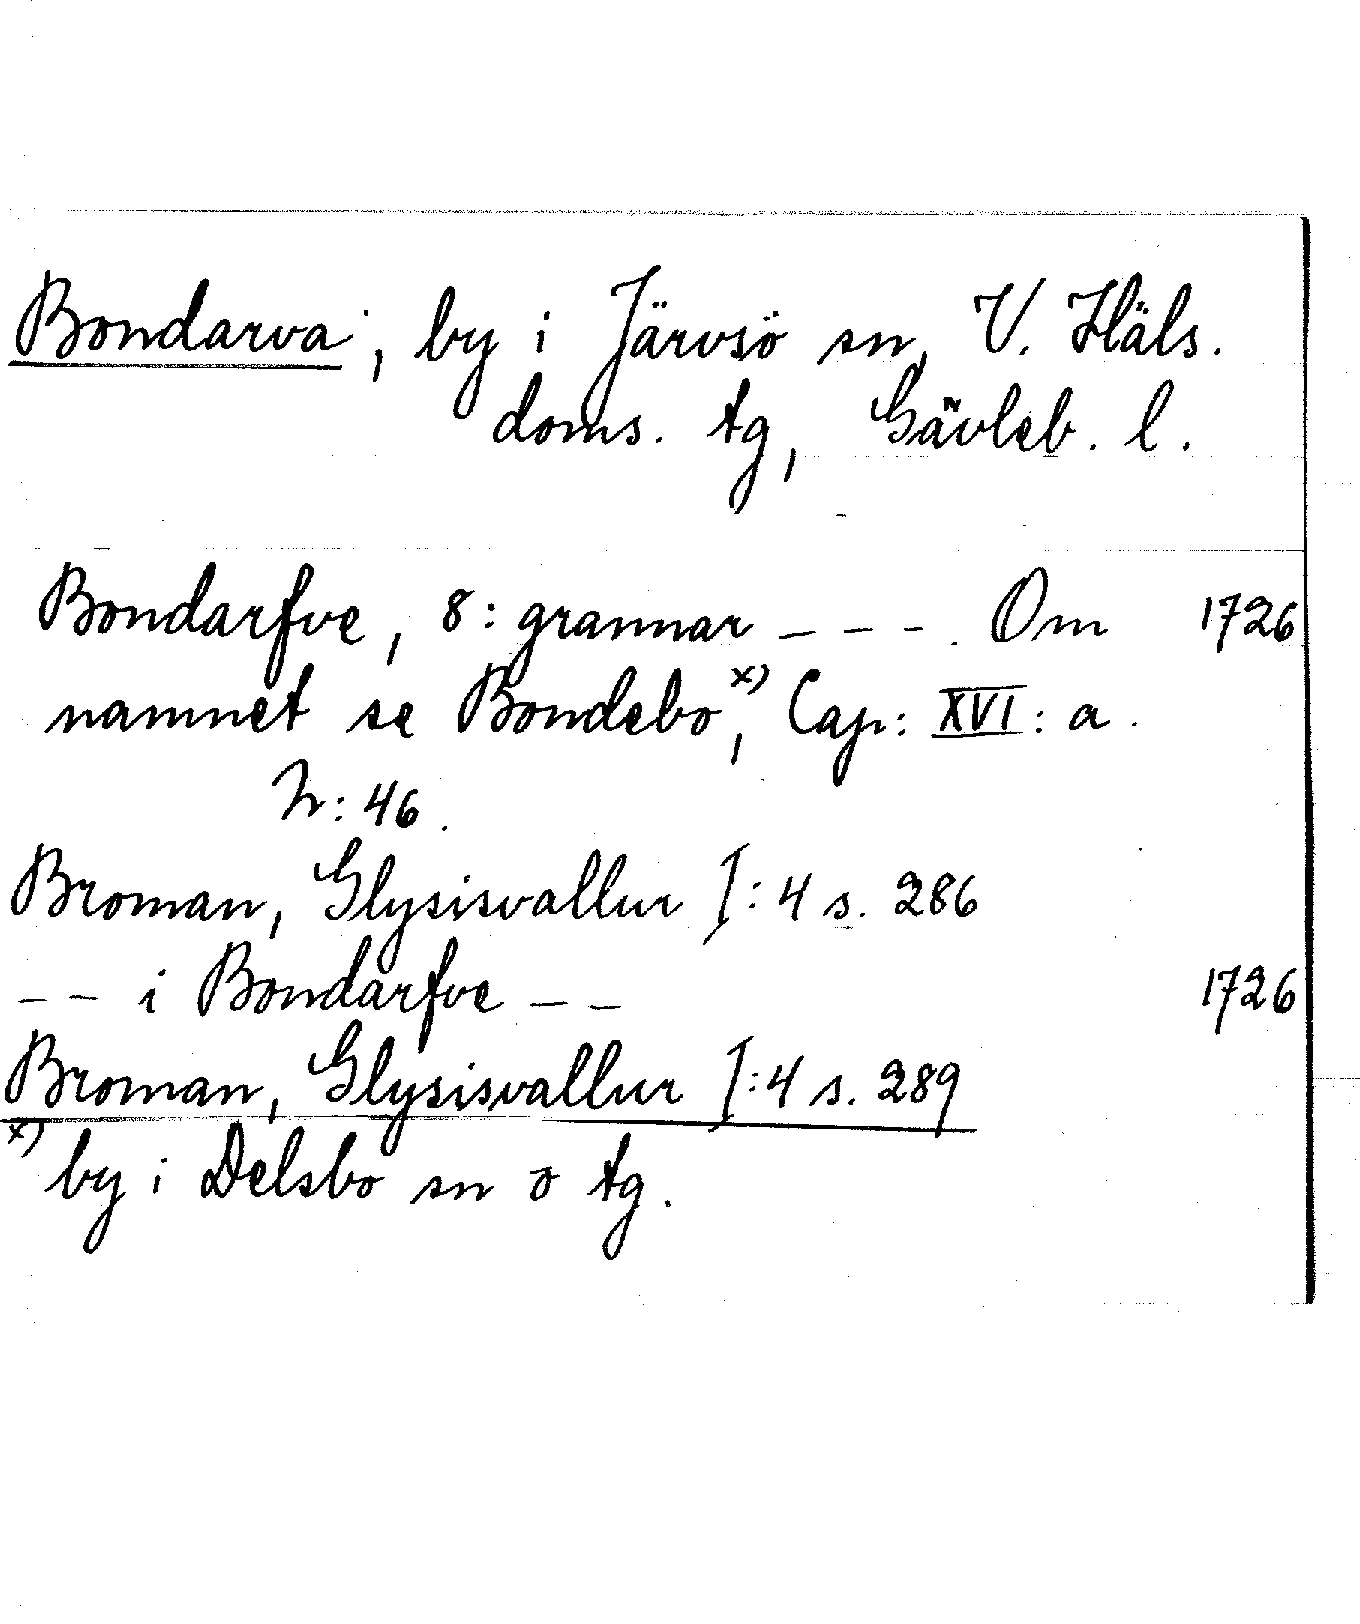 Bondarva, by i Järvsö sn, V. Häls.
doms. tg, Gävleb. l.
Bondarfve, 8: grannar - - - . Om 1726
namnet se Bondebo x), Cap: XVI: a.
N: 46.
Broman, Glysisvallur I:4 s. 286
- - i Bondarfve - - 1726
Broman, Glysisvallur I:4 s. 289
x) by i Delsbo sn o tg.